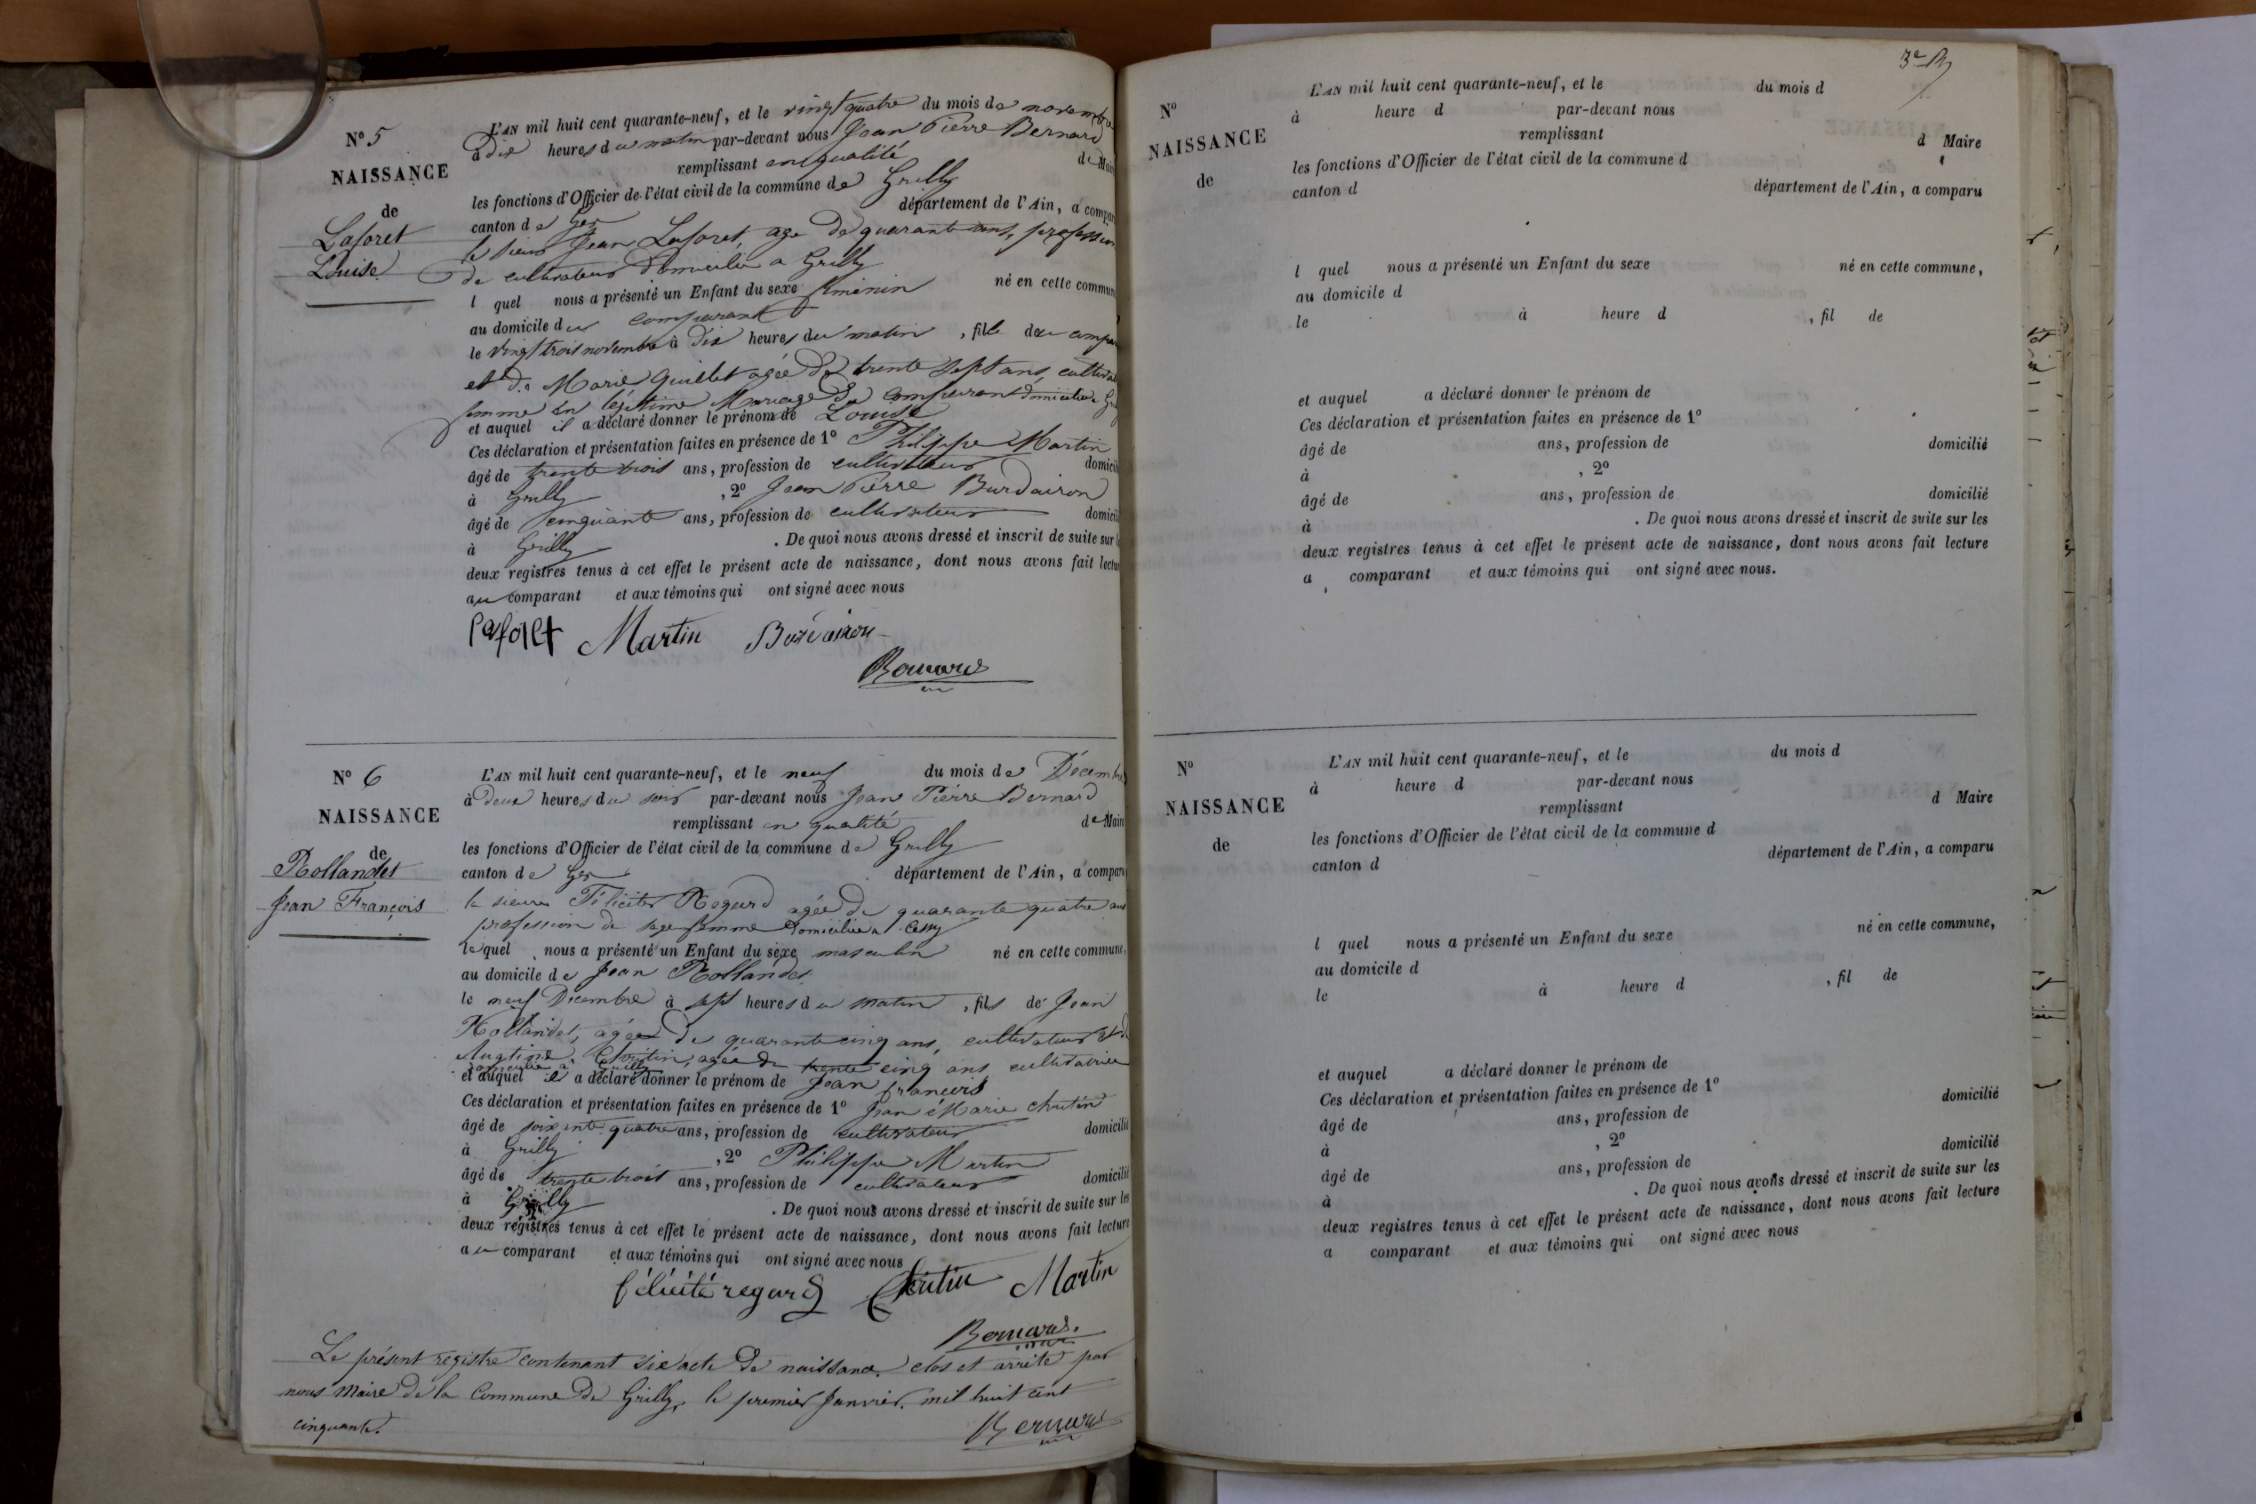 N° 5
NAISSANCE
de
Laforet
Louise
L'AN mil huit cent quarante-neuf, et le vingt quatre du mois de novembre
à dix heures du matin par-devant nous Jean Pierre Bernard
remplissant en qualité de Maire
les fonctions d'Officier de l'état civil de la commune de Grilly
canton de Gex département de l'Ain, a comparu
le sieur Jean Laforet, age de quarante ans, profession
de cultivateur domicilié a Grilly
l quel nous a présenté un Enfant du sexe féminin né en cette commune
au domicile du comparant
le vingt trois novembre à dix heures du matin, fille du
et de Marie Quillet agée de trente sept ans,
femme en légitime Mariage du comparant domiciliée
et auquel il a déclaré donner le prénom de Louise
Ces déclaration et présentation faites en présence de 1° Philippe Martin
âgé de trente trois ans, profession de cultivateur domicilié
à Grilly, 2° Jean Pierre Burdairon
âgé de cinquante ans, profession de cultivateur domicilié
à Grilly. De quoi nous avons dressé et inscrit de suite sur les
deux registres tenus à cet effet le présent acte de naissance, dont nous avons fait lecture
au comparant et aux témoins qui ont signé avec nous
laforet Martin Burdairon
Bernard
N° 6
NAISSANCE
de
Rollandet
Jean François
L'AN mil huit cent quarante-neuf, et le neuf du mois de Décembre
à deux heures du soir par-devant nous Jean Pierre Bernard
remplissant en qualité de Maire
les fonctions d'Officier de l'état civil de la commune de Grilly
canton de Gex département de l'Ain, a comparu
la Regard agée de quarante quatre ans
profession de sage femme domiciliée a Cessy
lequel nous a présenté un Enfant du sexe masculin né en cette commune,
au domicile de Jean Rollandet
le neuf Décembre à sept heures du matin, fils de Jean
Rollandet, agée de quarante cinq ans, cultivateur et de
Chutin, agée de trente cinq ans cultivatrice
domiciliée a Grilly
et auquel il a déclaré donner le prénom de Jean françois
Ces déclaration et présentation faites en présence de 1° Jean Marie Chutin
âgé de soixente quatre ans, profession de cultivateur domicilié
à Grilly, 2° Philippe Martin
âgé de trente trois ans, profession de cultivateur domicilié
à Grilly. De quoi nous avons dressé et inscrit de suite sur les
deux registres tenus à cet effet le présent acte de naissance, dont nous avons fait lecture
au comparant et aux témoins qui ont signé avec nous
félicité regard Chutin Martin
Bernard.
Le présent registre contenant six acte de naissance clos et arrêté par
nous Maire de la Commune de Grilly, le premier Janvier mil huit cent
cinquante.
Bernard
N°
NAISSANCE
de
L'AN mil huit cent quarante-neuf, et le du mois d
à heure d par-devant nous
remplissant d Maire
les fonctions d'Officier de l'état civil de la commune d
canton d département de l'Ain, a comparu
l quel nous a présenté un Enfant du sexe né en cette commune,
au domicile d
le à heure d , fil de
et auquel a déclaré donner le prénom de
Ces déclaration et présentation faites en présence de 1°
âgé de ans, profession de domicilié
à , 2°
âgé de ans, profession de domicilié
à . De quoi nous avons dressé et inscrit de suite sur les
deux registres tenus à cet effet le présent acte de naissance, dont nous avons fait lecture
a comparant et aux témoins qui ont signé avec nous.
N°
NAISSANCE
de
L'AN mil huit cent quarante-neuf, et le du mois d
à heure d par-devant nous
remplissant d Maire
les fonctions d'Officier de l'état civil de la commune d
canton d département de l'Ain, a comparu
l quel nous a présenté un Enfant du sexe né en cette commune,
au domicile d
le à heure d , fil de
et auquel a déclaré donner le prénom de
Ces déclaration et présentation faites en présence de 1°
âgé de ans, profession de domicilié
à , 2°
âgé de ans, profession de domicilié
à . De quoi nous avons dressé et inscrit de suite sur les
deux registres tenus à cet effet le présent acte de naissance, dont nous avons fait lecture
a comparant et aux témoins qui ont signé avec nous